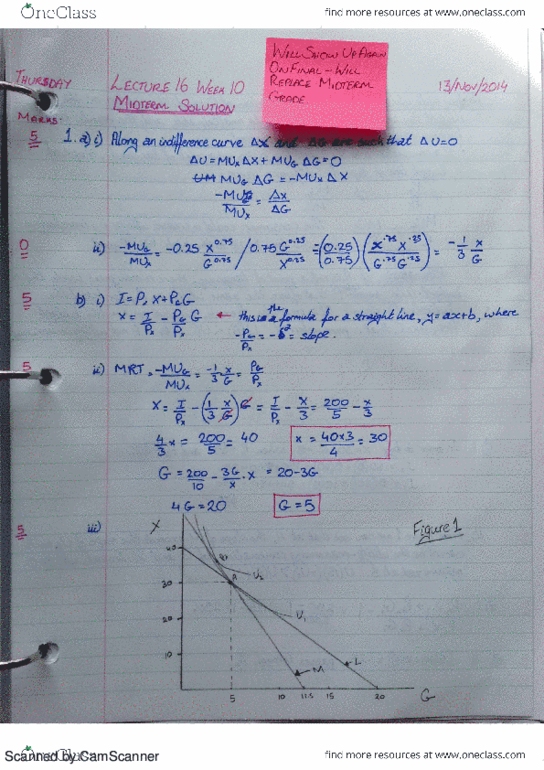 OneClass
find more resources at www.oneclass.com
WILL SHOW UP AGAIN
ON FINAL - WILL
REPLACE MIDTERM
GRADE
THURSDAY
LECTURE 16 WEEK 10
13/NOV/2014
MIDTERM SOLUTION
MARKS:
5
1. a) i) Along an indifference curve ΔX and ΔG are such that ΔU=0
ΔU = MUx ΔX + MUG ΔG = 0
MUG ΔG = -MUx ΔX
-MUG/MUx = ΔX/ΔG
0
ii) -MUG/MUx = -0.25 X^0.75/G^0.75 / 0.75 G^0.25/X^0.25 = (0.25/0.75)(X^.75 X^.25/G^.75 G^.25) = -1/3 X/G
5
b) i) I = Px X + PG G
X = I/Px - PG/Px G ← this is the formula for a straight line, y=ax+b, where
-PG/Px = = slope.
5
ii) MRT = -MUG/MUx = -1/3 X/G = PG/Px
X = I/Px - (1/3 X/G) G = I/Px - X/3 = 200/5 - X/3
4/3 x = 200/5 = 40
x = 40×3/4 = 30
G = 200/10 - 3G/x · x = 20-3G
4G = 20
G = 5
5
iii)
X
Figure 1
40
30
20
10
A
U2
U1
M
L
5
10
12.5
15
20
G
Scanned by CamScanner
OneClass
find more resources at www.oneclass.com